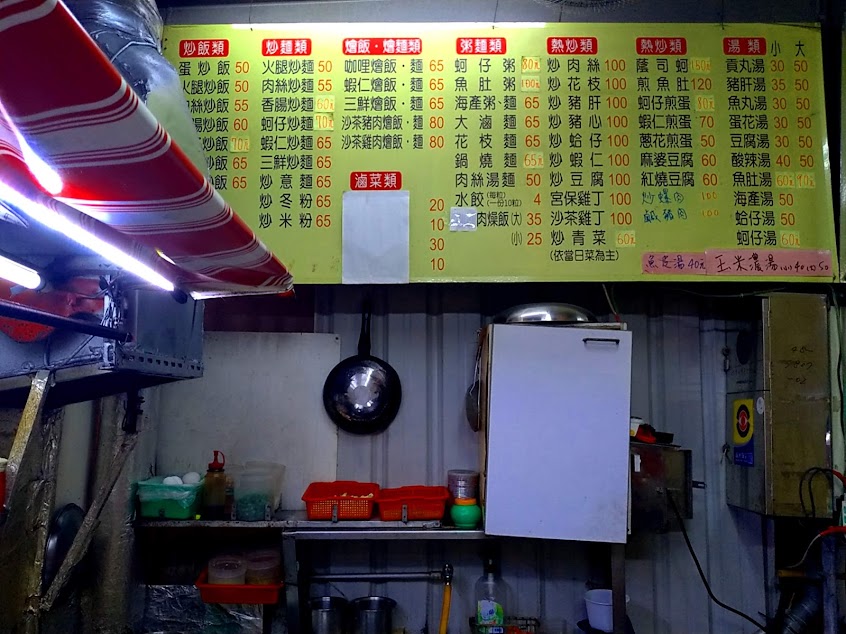 炒飯類
蛋炒飯 50
火腿炒飯 50
肉絲炒飯 55
炒飯 60
炒飯 70元
炒飯 65
炒飯 65
炒麵類
火腿炒麵 50
肉絲炒麵 55
香腸炒麵 60元
蚵仔炒麵 70元
蝦仁炒麵 65
三鮮炒麵 65
炒意麵 65
炒冬粉 65
炒米粉 65
燴飯・燴麵類
咖哩燴飯・麵 65
蝦仁燴飯・麵 65
三鮮燴飯・麵 65
沙茶豬肉燴飯・麵 80
沙茶雞肉燴飯・麵 80
滷菜類
20
10
30
10
粥麵類
蚵仔粥 80元
魚肚粥 100元
海產粥、麵 65
大滷麵 65
花枝麵 65
鍋燒麵 65元
肉絲湯麵 50
水餃(每粒)(一份10粒) 4
肉燥飯(大) 35
(小) 25
熱炒類
炒肉絲 100
炒花枝 100
炒豬肝 100
炒豬心 100
炒蛤仔 100
炒蝦仁 100
炒豆腐 100
宮保雞丁 100
沙茶雞丁 100
炒青菜 60元
(依當日菜為主)
熱炒類
蔭司蚵 150元
煎魚肚 120
蚵仔煎蛋 80元
蝦仁煎蛋 70
蔥花煎蛋 50
麻婆豆腐 60
紅燒豆腐 60
炒螺肉 100
鹹豬肉 100
湯類 小 大
貢丸湯 30 50
豬肝湯 35 50
魚丸湯 30 50
蛋花湯 30 50
豆腐湯 30 50
酸辣湯 40 50
魚肚湯 60元 90元
海產湯 50
蛤仔湯 50
蚵仔湯 60元
魚皮湯40元
玉米濃湯(小)40(大)50